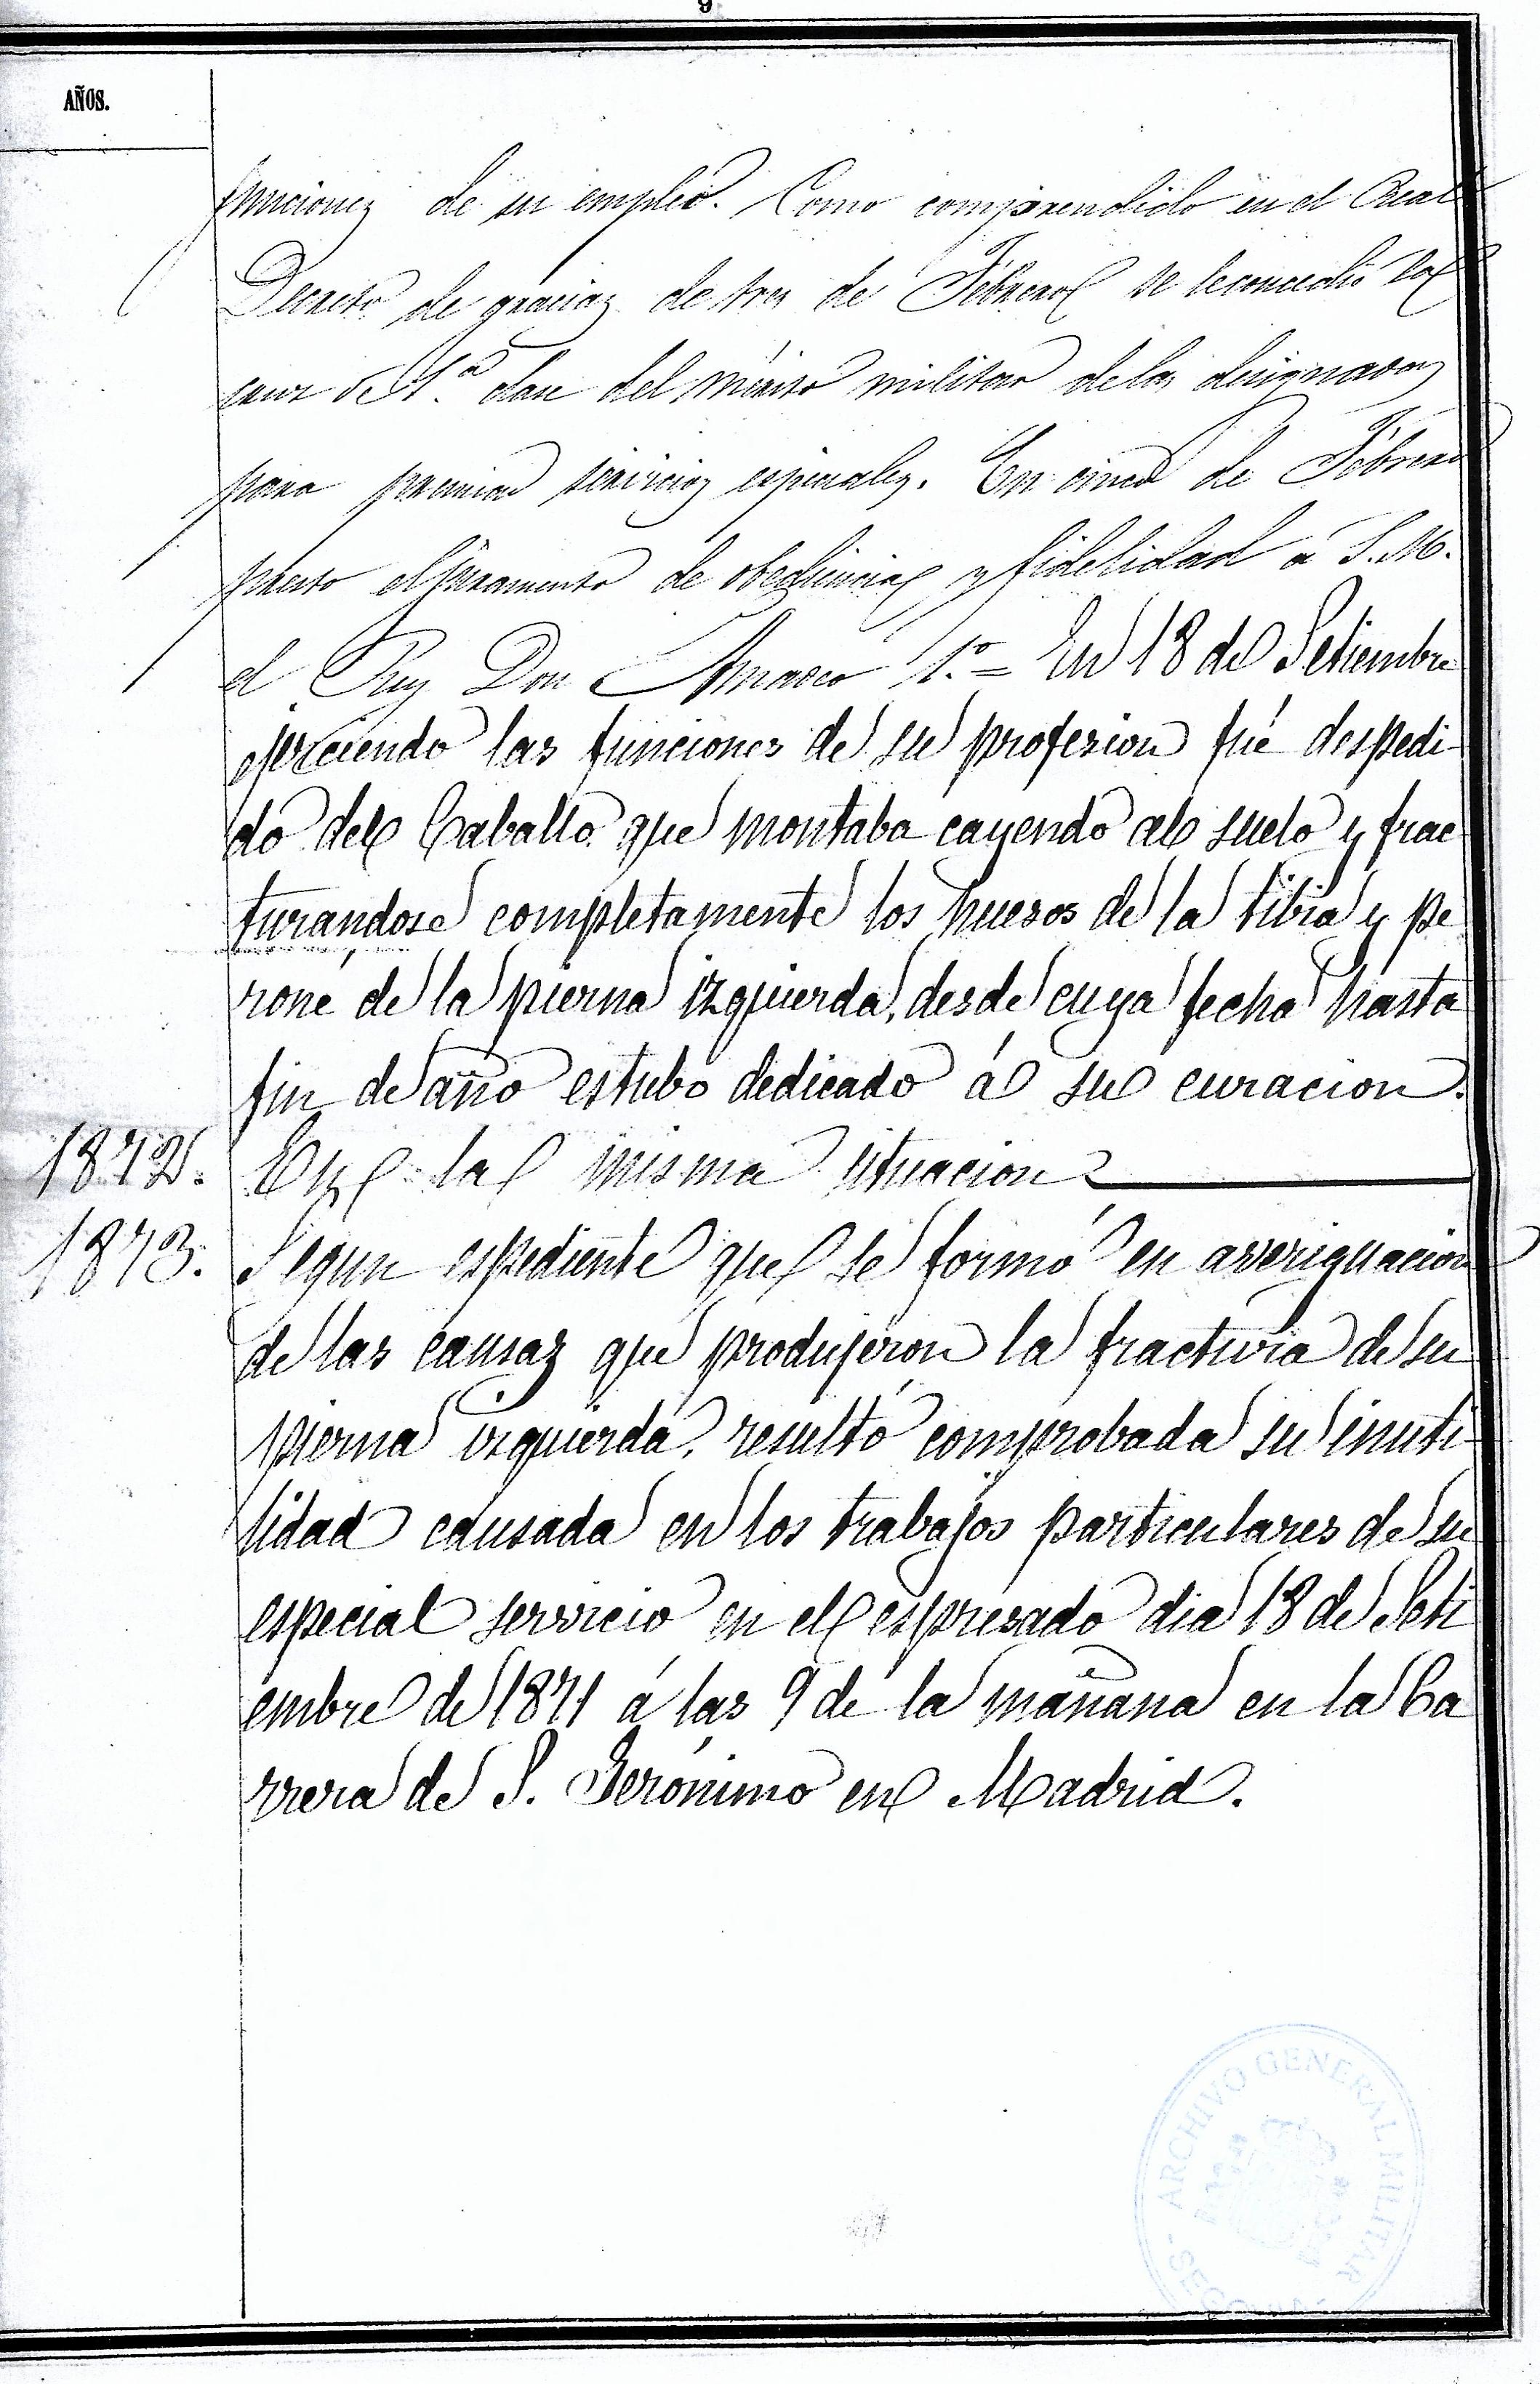 9
AÑOS.
funciones de su empleó. Como comprendido en el Real
Decreto de gracias de tres de Febrero se le concedió la
cruz de 1.ª clase del mérito militar de las designadas
para premiar servicios especiales. En cinco de Febrero
presto el juramento de obediencia y fidelidad a S. M.
el Rey Don Amadeo 1.º = En 18 de Setiembre
ejerciendo las funciones de su profesion fué despedi-
do del Caballo que montaba cayendo al suelo y frac
turandose completamente los huesos de la tibia y pe
roné de la pierna izquierda, desde cuya fecha hasta
fin de año estubo dedicado á su curacion.
1872. En la misma situacion
1873. Segun espediente que se formó en averiguacion
de las causas que produjeron la fractura de su
pierna izquierda, resultó comprobada su inuti-
lidad causada en los trabajos particulares de su
especial servicio en el espresado dia 18 de Seti
embre de 1871 á las 9 de la mañana en la Ca
rrera de S. Gerónimo en Madrid.
ARCHIVO GENERAL MILITAR